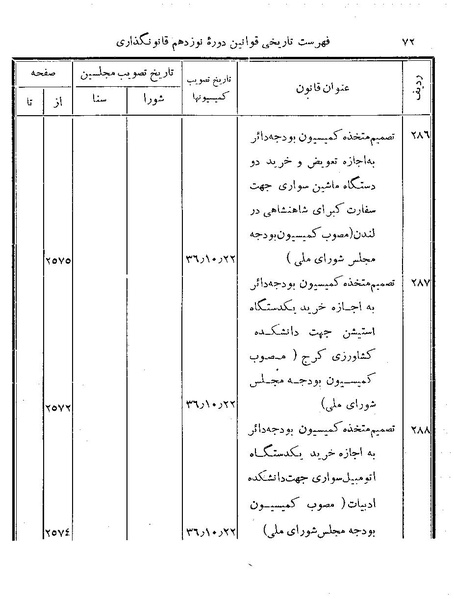 ۷۲ فهرست تاریخی قوانین دورهٔ نوزدهم قانونگذاری
ردیف عنوان قانون تاریخ تصویب کمیسیونها تاریخ تصویب مجلسین صفحه
شورا سنا از تا
۲۸۶ تصمیم متخذه کمیسیون بودجه دائر
به اجازه تعویض و خرید دو
دستگاه ماشین سواری جهت
سفارت کبرای شاهنشاهی در
لندن (مصوب کمیسیون بودجه
مجلس شورای ملی) ۳۶٫۱۰٫۲۲ ۲۵۷۵
۲۸۷ تصمیم متخذه کمیسیون بودجه دائر
به اجازه خرید یکدستگاه
استیشن جهت دانشکده
کشاورزی کرج (مصوب
کمیسیون بودجه مجلس
شورای ملی) ۳۶٫۱۰٫۲۲ ۲۵۷۲
۲۸۸ تصمیم متخذه کمیسیون بودجه دائر
به اجازه خرید یکدستگاه
اتومبیل سواری جهت دانشکده
ادبیات (مصوب کمیسیون
بودجه مجلس شورای ملی) ۳۶٫۱۰٫۲۲ ۲۵۷٤